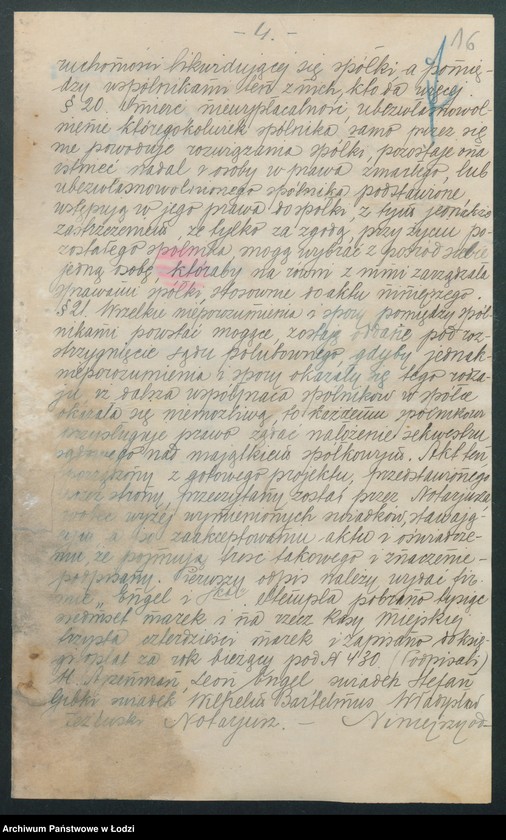 - 4. - 16
ruchomości likwidującej się spółki, a pomię-
dzy wspólnikami ten z nich, kto da więcej.
§ 20. Śmierć, niewypłacalność, ubezwłasnowol-
nienie któregokolwiek spólnika samo przez się
nie powoduje rozwiązania spółki, pozostaje ona
istnieć nadal, a osoby w prawa zmarłego, lub
ubezwłasnowolnionego spólnika podstawione
wstępują w jego prawa do spółki, z tym jednakże
zastrzeżeniem, że tylko za zgodą przy życiu po-
zostałego spólnika mogą wybrać z pośród siebie
jedną osobę, któraby na równi z nimi zarządzała
sprawami spółki, stosownie do aktu niniejszego.
§ 21. Wszelkie nieporozumienia i spory pomiędzy spól-
nikami powstać mogące, zostają oddane pod roz-
strzygnięcie sądu polubownego, gdyby jednak
nieporozumienia i spory okazały się tego rodza-
ju, iż dalsza współpraca spólników w spółce
okazała się niemożliwą, to każdemu spólnikowi
przysługuje prawo żądać nałożenia sekwestru
sądowego nad majątkiem spółkowym. Akt ten
sporządzony z gotowego projektu, przedstawionego
przez strony, przeczytany został przez Notarjusza
wobec wyżej wymienionych świadków, stawają-
cym, a po zaakceptowaniu aktu i oświadcze-
niu że pojmują treść takowego i znaczenie -
podpisany. Pierwszy odpis należy wydać fir-
mie „Engel i S-ka". Stempla pobrano tysiąc
siedmset marek i na rzecz kasy Miejskiej
trzysta czterdzieści marek i zapisano do księ-
gi opłat za rok bieżący pod № 430. (Podpisali)
Leon Engel, świadek Stefan
świadek, Wilhelm Bartelmus, Władysław
Notarjusz. - Niniejszy od-
Archiwum Państwowe w Łodzi